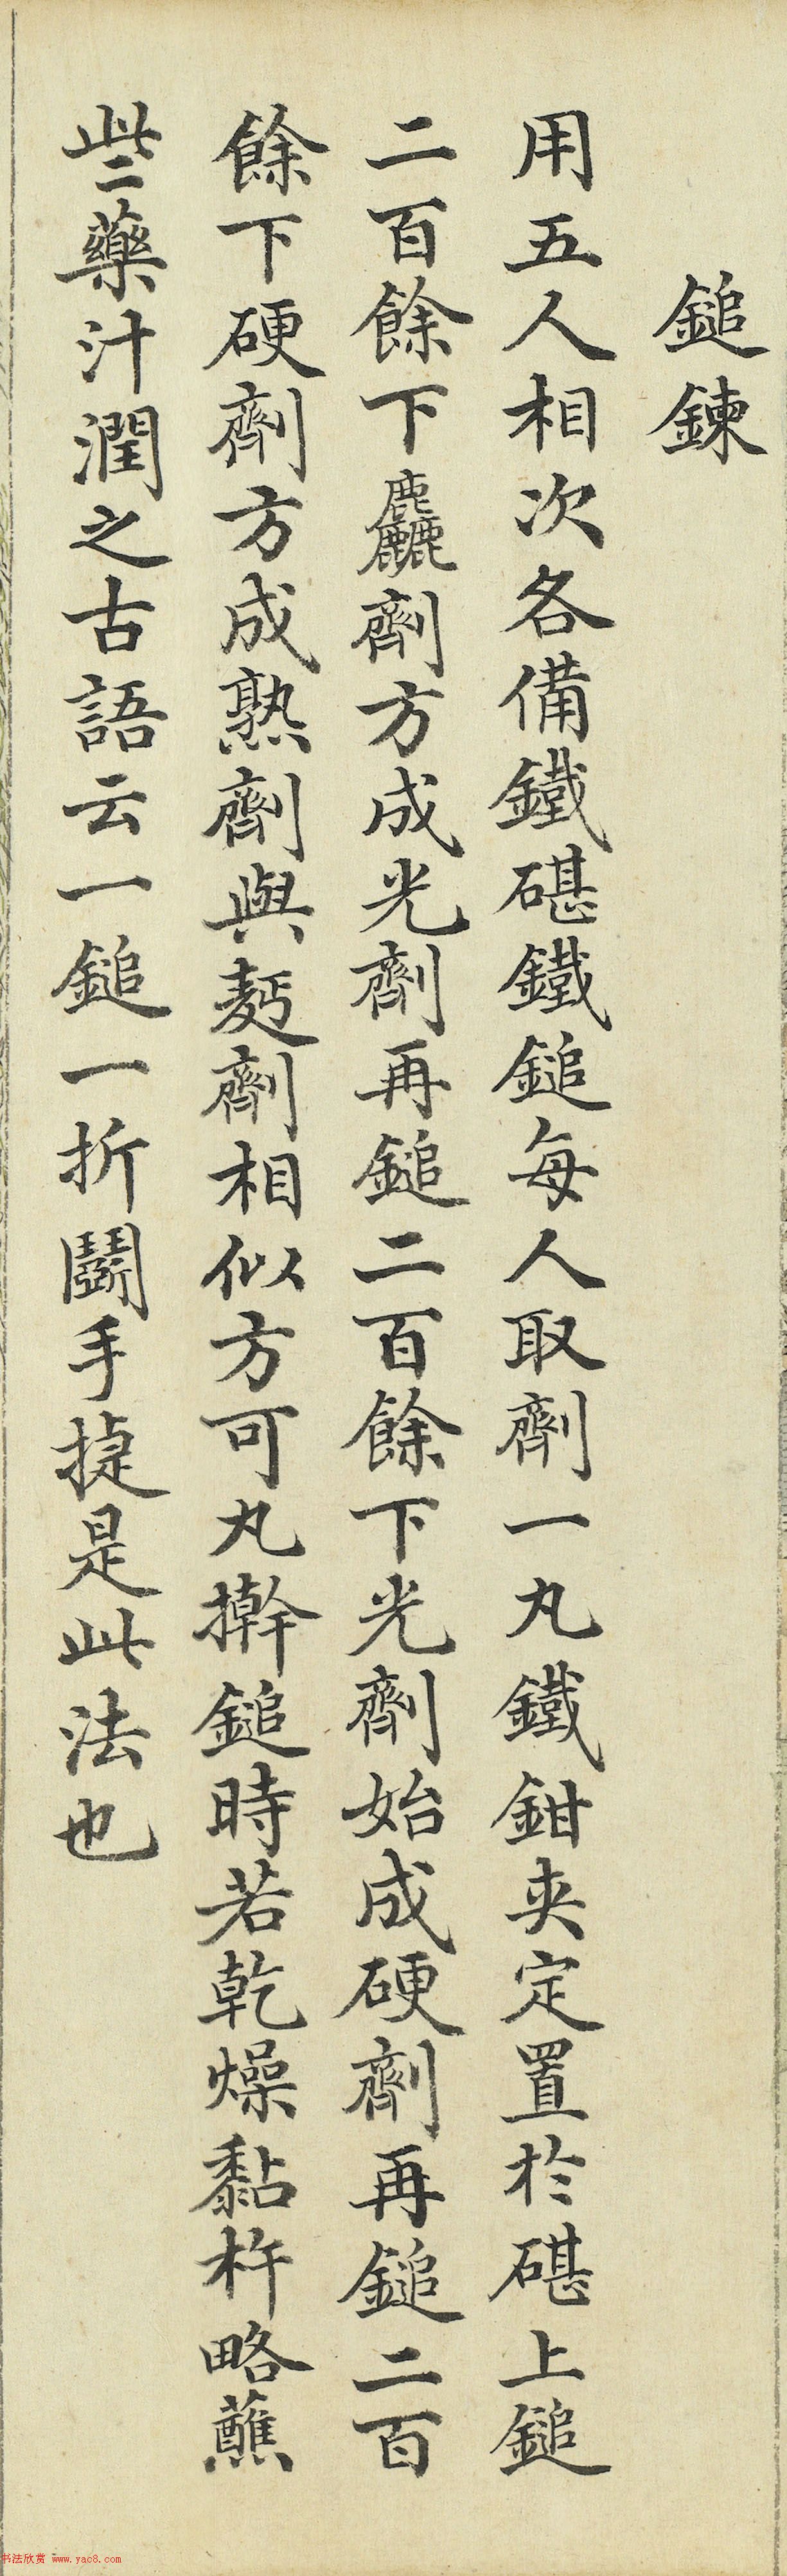 鎚鍊
用五人相次各備鐵碪鐵鎚每人取劑一丸鐵鉗夾定置於碪上鎚
二百餘下麤劑方成光劑再鎚二百餘下光劑始成硬劑再鎚二百
餘下硬劑方成熟劑與麪劑相似方可丸擀鎚時若乾燥黏杵略蘸
些藥汁潤之古語云一鎚一折鬭手捷是此法也
书法欣赏 www.yac8.com